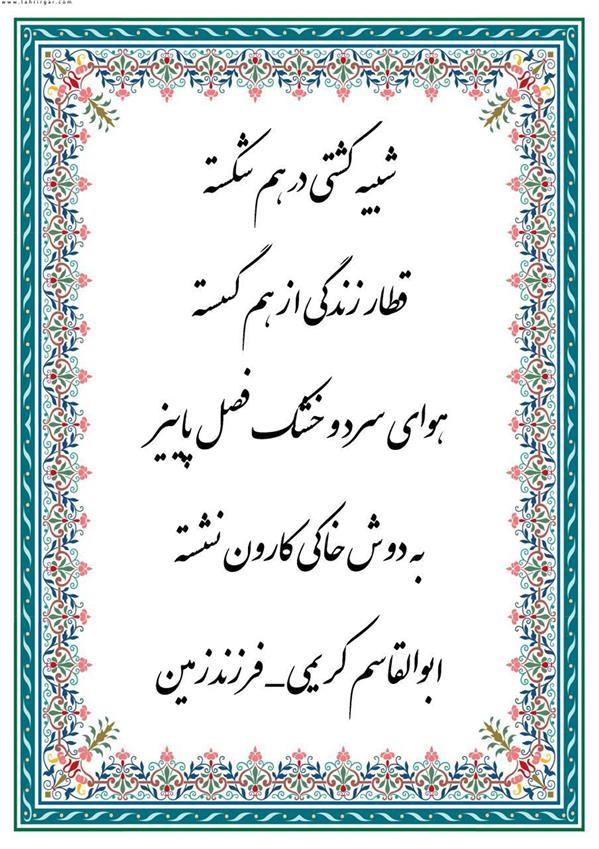 www.tahrirgar.com
شبیه کشتی درهم شکسته
قطار زندگی از هم گسسته
هوای سرد و خشک فصل پاییز
به دوش خاکی کارون نشسته
ابوالقاسم کریمی_فرزندزمین